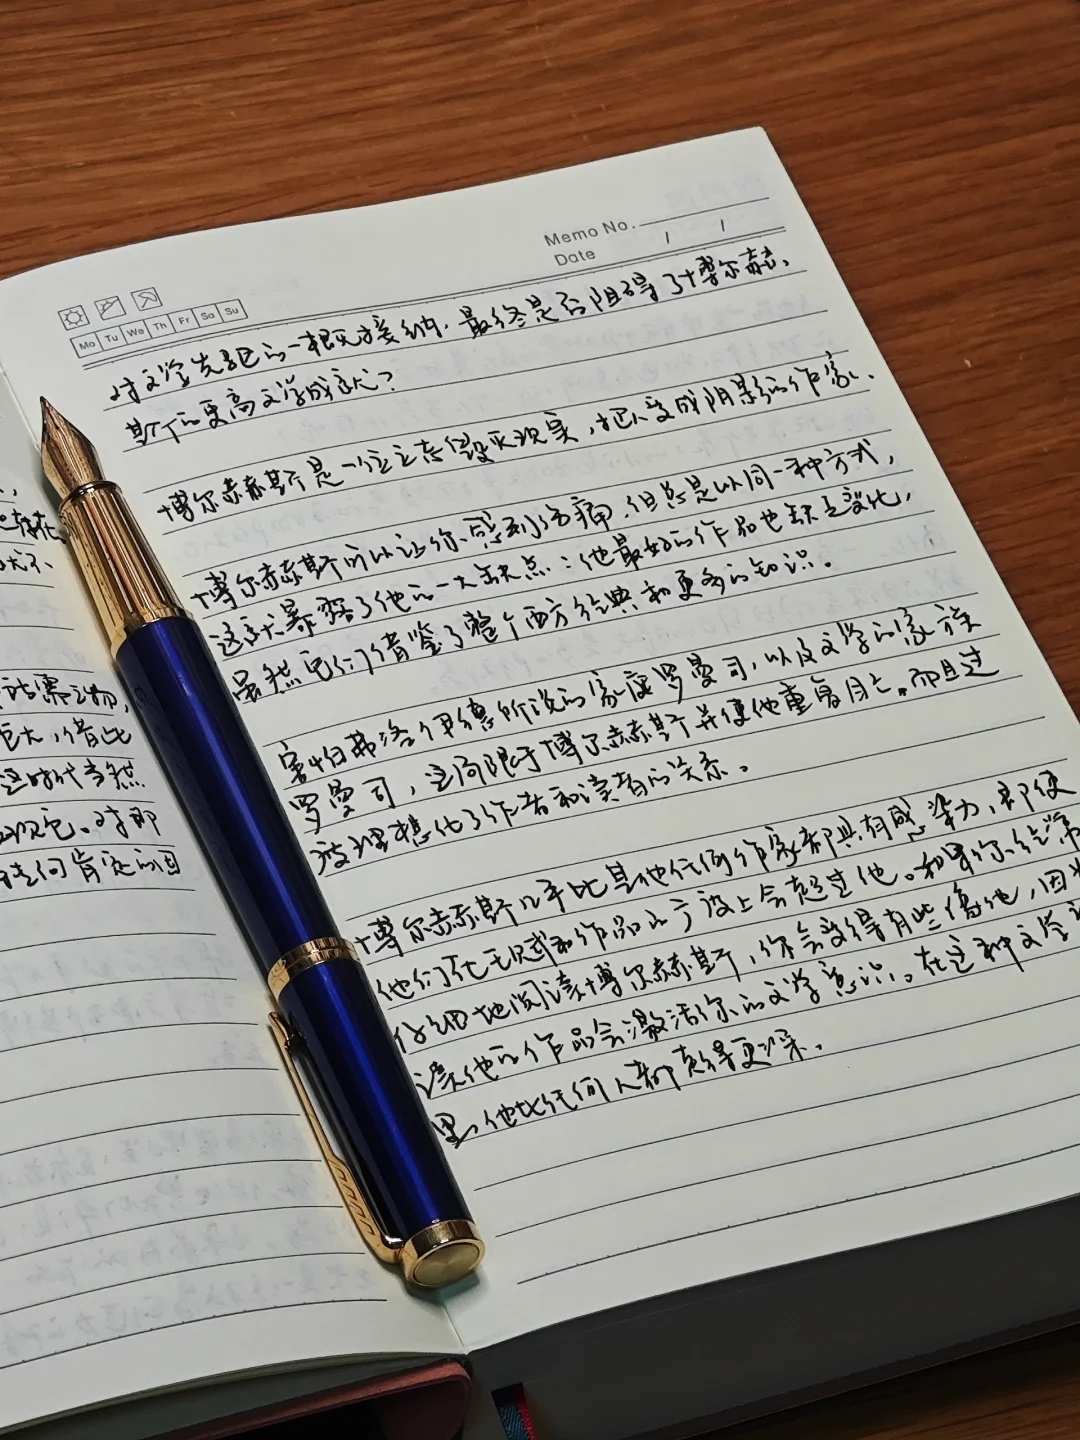 在
大不
所需之物,
巨大,借此
这时代当然
现它。对那
任何肯定的回
Memo No.
Date / /
Mo Tu We Th Fr Sa Su
对文学先驱的一概接纳,最终是否阻碍了博尔赫
斯们的更高文学成就?
博尔赫赫斯是一位立志毁灭现实,把人变成阴影的作家.
博尔赫赫斯可以让你感到伤痛,但总是以同一种方式,
这就暴露了他的一大缺点:他最好的作品也缺乏变化,
虽然它们借鉴了整个西方经典和更多的知识。
害怕弗洛伊德所说的家庭罗曼司,以及文学的家族
罗曼司,这局限于博尔赫赫斯并使他重复自己。而且过
度理想化了作者和读者的关系。
博尔赫赫斯几乎比其他任何作家都具有感染力,即使
他们在天赋和作品的广度上会超过他。如果你经常
仔细地阅读博尔赫赫斯,你会变得有些像他,因为
读他的作品会激活你的文学意识。在这种文学
里,他比任何人都走得更深。